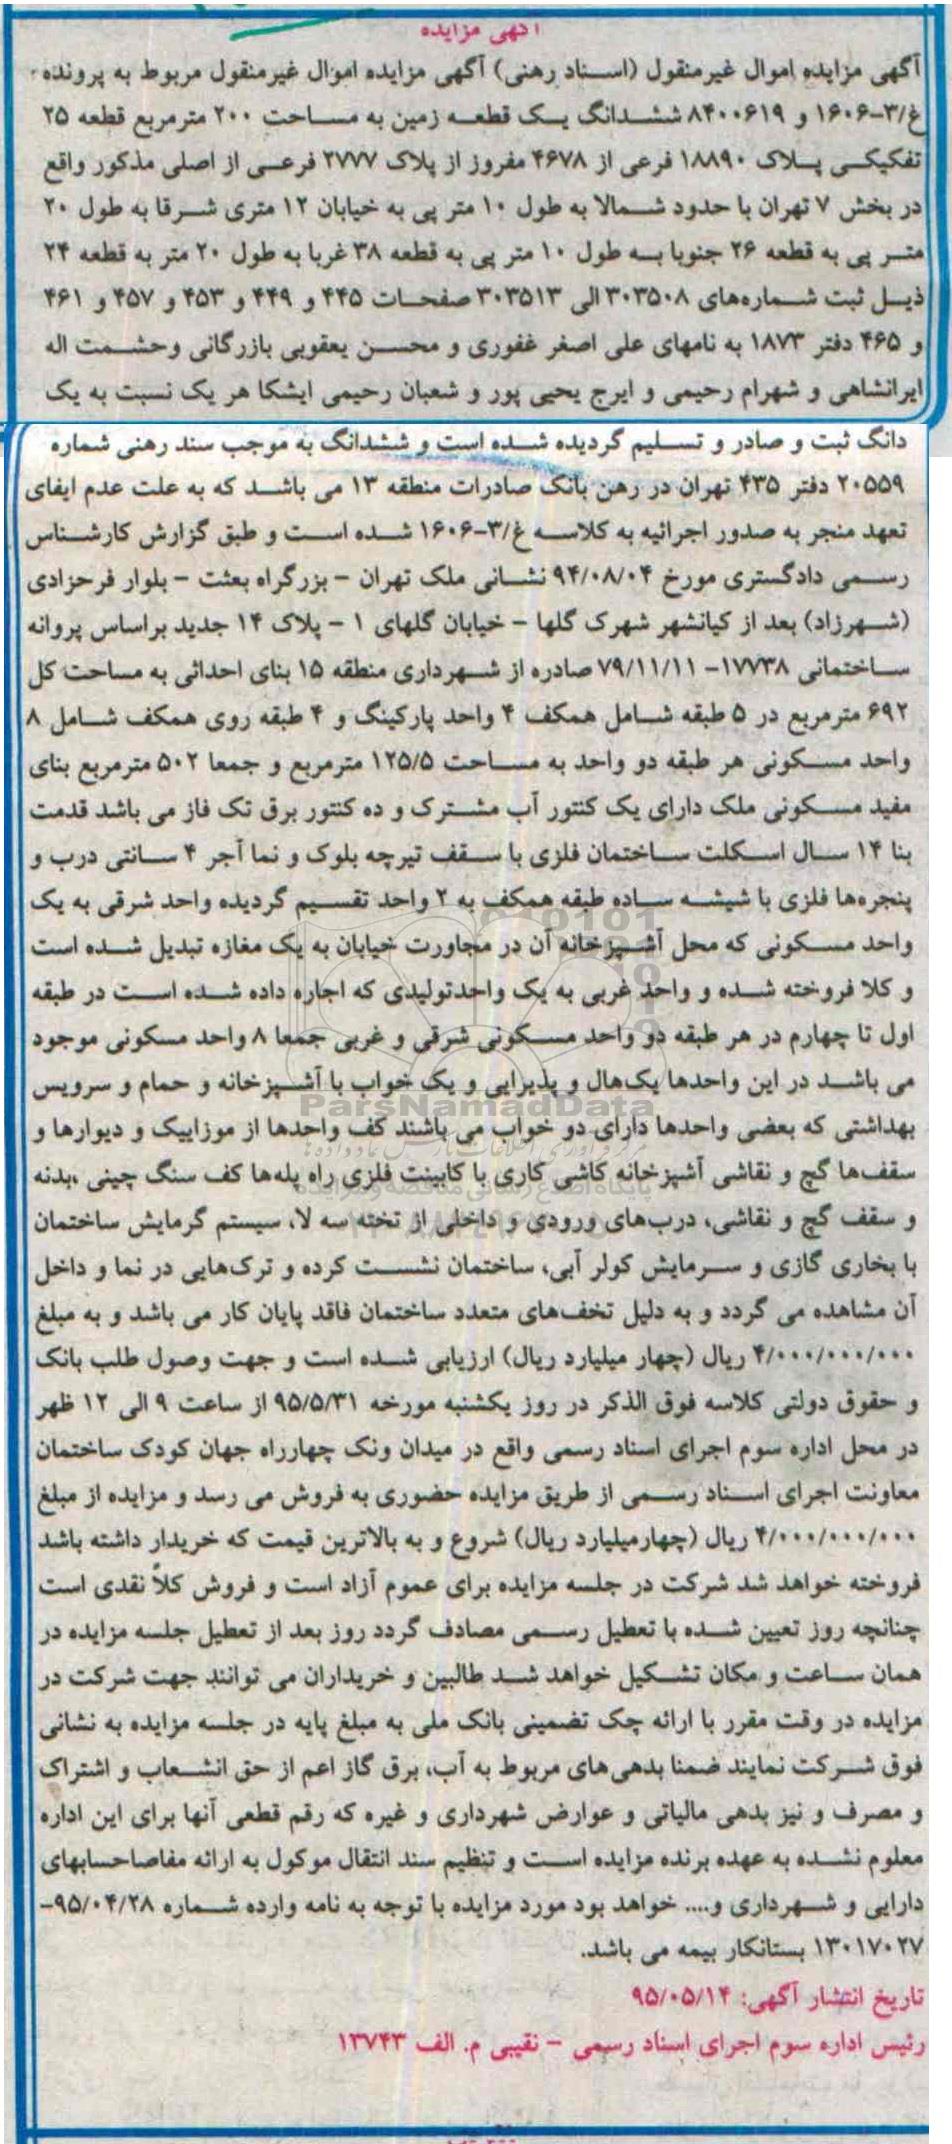 آگهی مزایده
آگهی مزایده اموال غیرمنقول (اسناد رهنی) آگهی مزایده اموال غیرمنقول مربوط به پرونده
غ/۳-۱۶۰۶ و ۸۴۰۰۶۱۹ ششدانگ یک قطعه زمین به مساحت ۲۰۰ مترمربع قطعه ۲۵
تفکیکی پلاک ۱۸۸۹۰ فرعی از ۴۶۷۸ مفروز از پلاک ۲۷۷۷ فرعی از اصلی مذکور واقع
در بخش ۷ تهران با حدود شمالا به طول ۱۰ متر پی به خیابان ۱۲ متری شرقا به طول ۲۰
متر پی به قطعه ۲۶ جنوبا به طول ۱۰ متر پی به قطعه ۳۸ غربا به طول ۲۰ متر به قطعه ۲۴
ذیل ثبت شماره‌های ۳۰۳۵۰۸ الی ۳۰۳۵۱۳ صفحات ۴۴۵ و ۴۴۹ و ۴۵۳ و ۴۵۷ و ۴۶۱
و ۴۶۵ دفتر ۱۸۷۳ به نامهای علی اصغر غفوری و محسن یعقوبی بازرگانی وحشمت اله
ایرانشاهی و شهرام رحیمی و ایرج یحیی پور و شعبان رحیمی ایشکا هر یک نسبت به یک
دانگ ثبت و صادر و تسلیم گردیده شده است و ششدانگ به موجب سند رهنی شماره
۲۰۵۵۹ دفتر ۴۳۵ تهران در رهن بانک صادرات منطقه ۱۳ می باشد که به علت عدم ایفای
تعهد منجر به صدور اجرائیه به کلاسه غ/۳-۱۶۰۶ شده است و طبق گزارش کارشناس
رسمی دادگستری مورخ ۹۴/۰۸/۰۴ نشانی ملک تهران - بزرگراه بعثت - بلوار فرحزادی
(شهرزاد) بعد از کیانشهر شهرک گلها - خیابان گلهای ۱ - پلاک ۱۴ جدید براساس پروانه
ساختمانی ۱۷۷۳۸- ۷۹/۱۱/۱۱ صادره از شهرداری منطقه ۱۵ بنای احداثی به مساحت کل
۶۹۲ مترمربع در ۵ طبقه شامل همکف ۴ واحد پارکینگ و ۴ طبقه روی همکف شامل ۸
واحد مسکونی هر طبقه دو واحد به مساحت ۱۲۵/۵ مترمربع و جمعا ۵۰۲ مترمربع بنای
مفید مسکونی ملک دارای یک کنتور آب مشترک و ده کنتور برق تک فاز می باشد قدمت
بنا ۱۴ سال اسکلت ساختمان فلزی با سقف تیرچه بلوک و نما آجر ۴ سانتی درب و
پنجره‌ها فلزی با شیشه ساده طبقه همکف به ۲ واحد تقسیم گردیده واحد شرقی به یک
واحد مسکونی که محل آشپزخانه آن در مجاورت خیابان به یک مغازه تبدیل شده است
و کلا فروخته شده و واحد غربی به یک واحدتولیدی که اجاره داده شده است در طبقه
اول تا چهارم در هر طبقه دو واحد مسکونی شرقی و غربی جمعا ۸ واحد مسکونی موجود
می باشد در این واحدها یک‌هال و پذیرایی و یک خواب با آشپزخانه و حمام و سرویس
ParsNamadData
بهداشتی که بعضی واحدها دارای دو خواب می باشند کف واحدها از موزاییک و دیوارها و
سقف‌ها گچ و نقاشی آشپزخانه کاشی کاری با کابینت فلزی راه پله‌ها کف سنگ چینی ،بدنه
و سقف گچ و نقاشی، درب‌های ورودی و داخلی از تخته سه لا، سیستم گرمایش ساختمان
با بخاری گازی و سرمایش کولر آبی، ساختمان نشست کرده و ترک‌هایی در نما و داخل
آن مشاهده می گردد و به دلیل تخف‌های متعدد ساختمان فاقد پایان کار می باشد و به مبلغ
۴/۰۰۰/۰۰۰/۰۰۰ ریال (چهار میلیارد ریال) ارزیابی شده است و جهت وصول طلب بانک
و حقوق دولتی کلاسه فوق الذکر در روز یکشنبه مورخه ۹۵/۵/۳۱ از ساعت ۹ الی ۱۲ ظهر
در محل اداره سوم اجرای اسناد رسمی واقع در میدان ونک چهارراه جهان کودک ساختمان
معاونت اجرای اسناد رسمی از طریق مزایده حضوری به فروش می رسد و مزایده از مبلغ
۴/۰۰۰/۰۰۰/۰۰۰ ریال (چهارمیلیارد ریال) شروع و به بالاترین قیمت که خریدار داشته باشد
فروخته خواهد شد شرکت در جلسه مزایده برای عموم آزاد است و فروش کلاً نقدی است
چنانچه روز تعیین شده با تعطیل رسمی مصادف گردد روز بعد از تعطیل جلسه مزایده در
همان ساعت و مکان تشکیل خواهد شد طالبین و خریداران می توانند جهت شرکت در
مزایده در وقت مقرر با ارائه چک تضمینی بانک ملی به مبلغ پایه در جلسه مزایده به نشانی
فوق شرکت نمایند ضمنا بدهی‌های مربوط به آب، برق گاز اعم از حق انشعاب و اشتراک
و مصرف و نیز بدهی مالیاتی و عوارض شهرداری و غیره که رقم قطعی آنها برای این اداره
معلوم نشده به عهده برنده مزایده است و تنظیم سند انتقال موکول به ارائه مفاصاحسابهای
دارایی و شهرداری و.... خواهد بود مورد مزایده با توجه به نامه وارده شماره ۹۵/۰۴/۲۸-
۱۳۰۱۷۰۲۷ بستانکار بیمه می باشد.
تاریخ انتشار آگهی: ۹۵/۰۵/۱۴
رئیس اداره سوم اجرای اسناد رسمی - نقیبی م. الف ۱۳۷۴۳